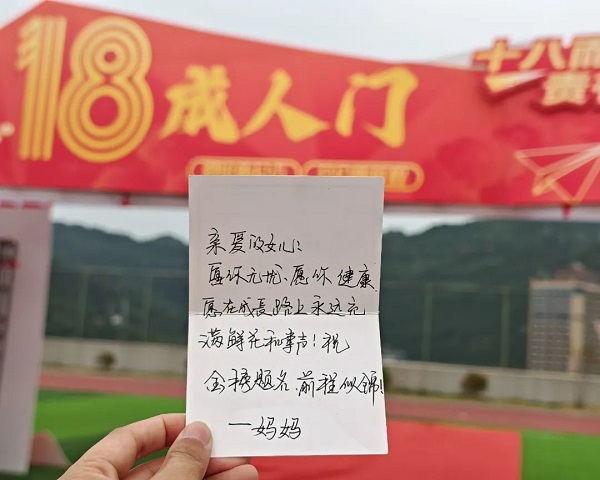 18成人门
十八而
责
亲爱的女儿:
愿你无忧、愿你健康
愿在成长路上永远充
满鲜花和掌声!祝
金榜题名、前程似锦!
一妈妈